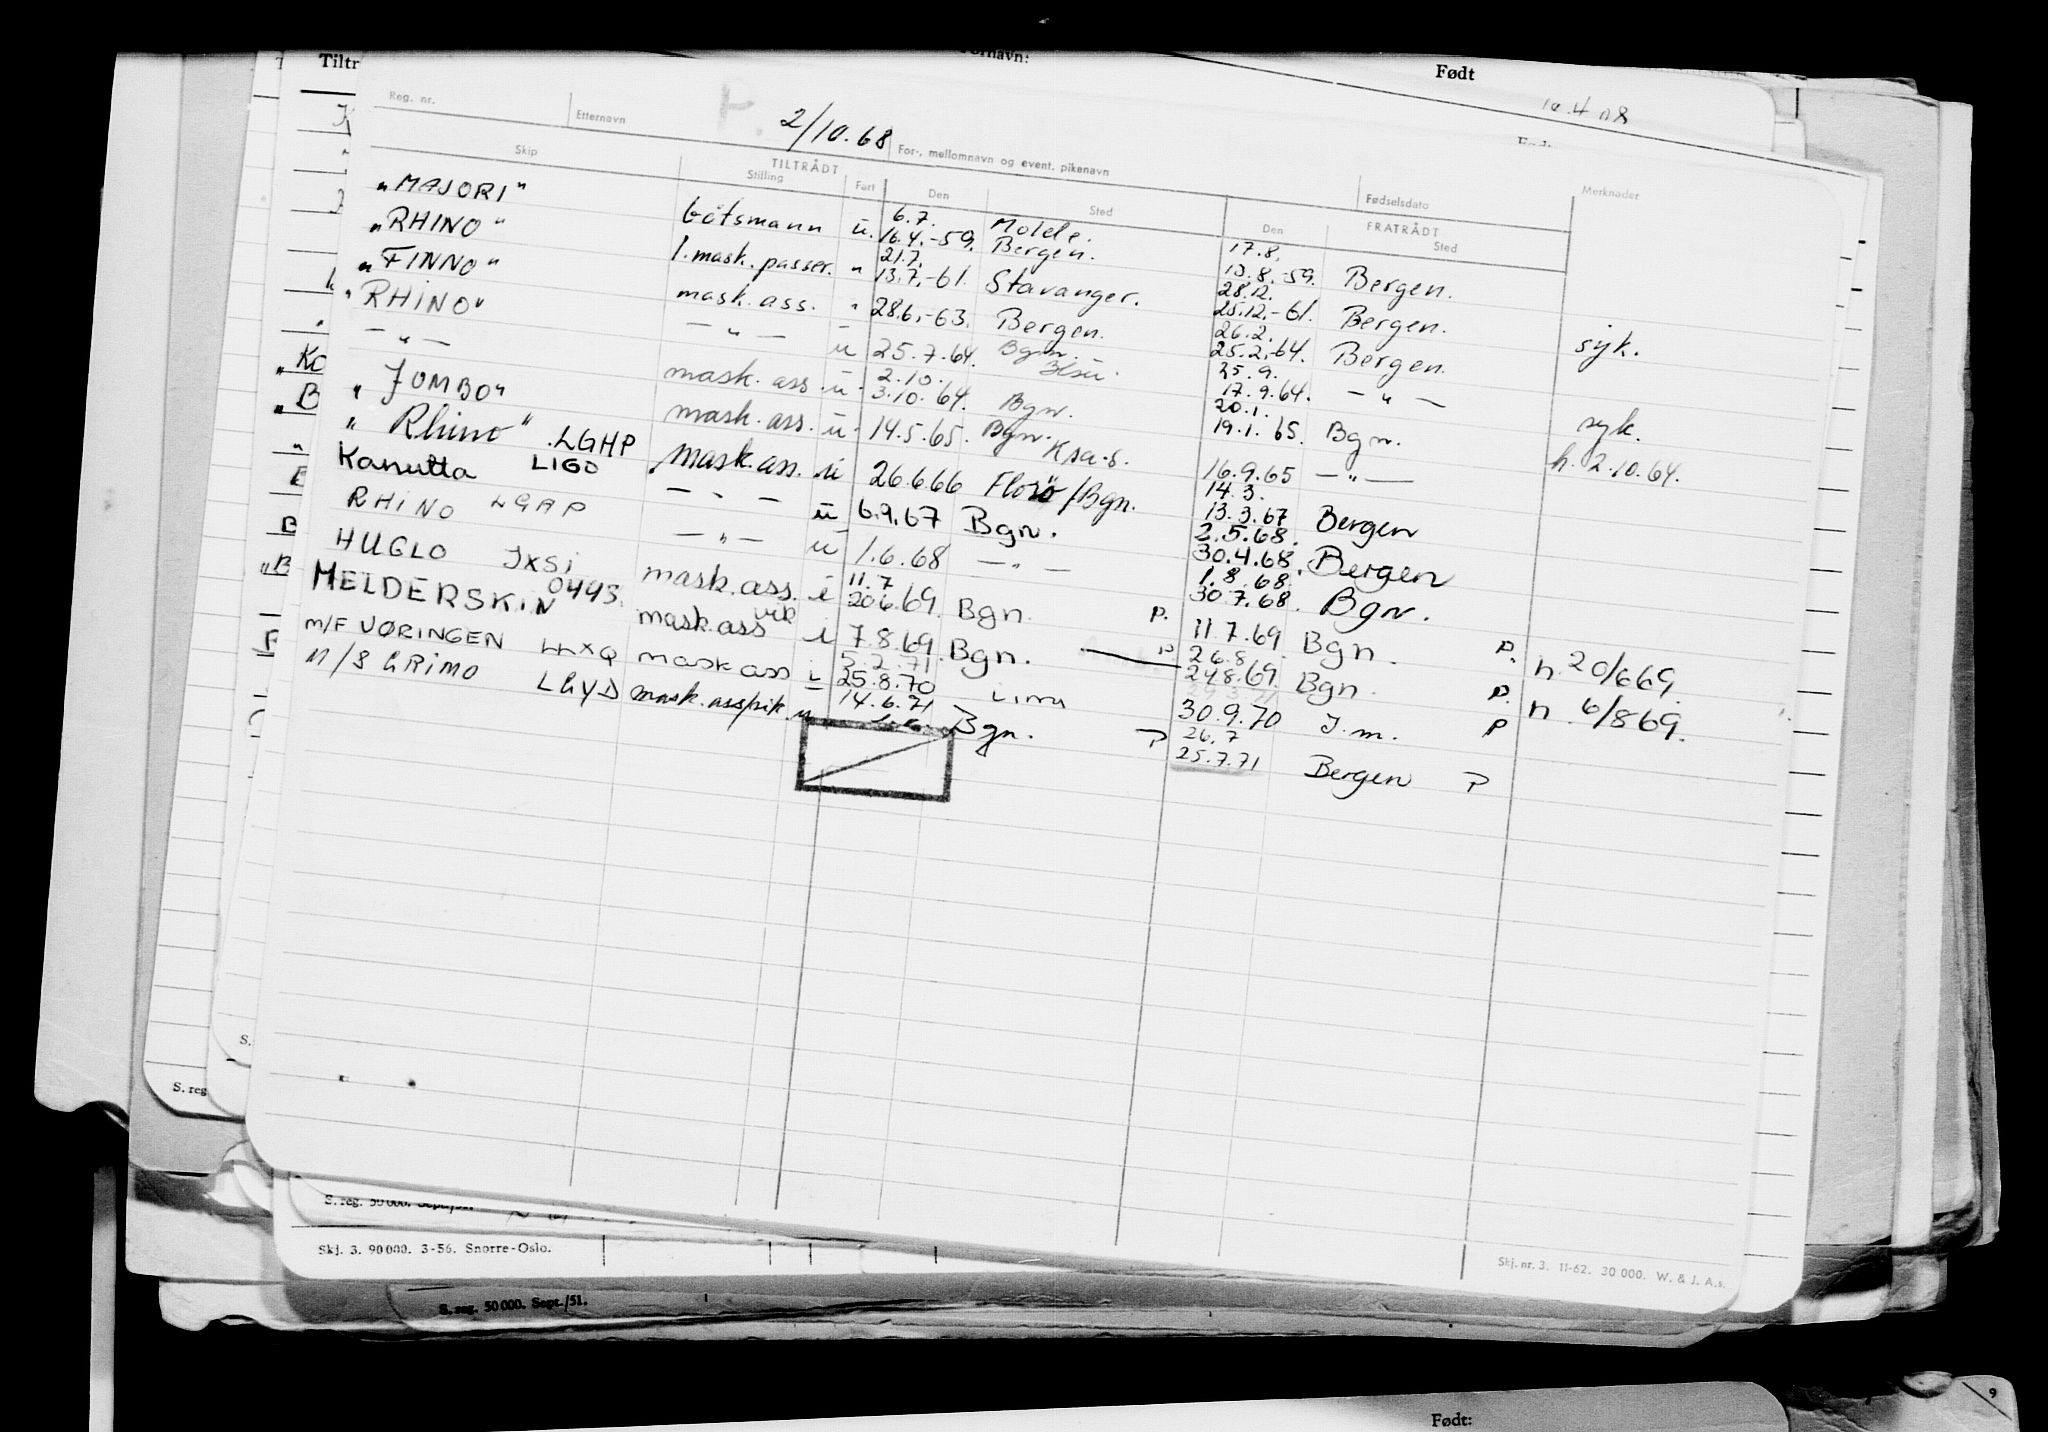 Tiltr
Fornavn:
Født
Reg. nr.
Etternavn
2/10.68
For-, mellomnavn og event. pikenavn
Fødselsdato
Merknader
Skip
TILTRÅDT
Stilling
Fart
Den
Sted
FRATRÅDT
Den
Sted
"MAJORI" båtsmann u. 6.7. Molde. 17.8.
"RHINO" 1. mask. passer. " 16.4.-59. Bergen. 13.8.-59. Bergen.
21.7. 28.12.
"FINNO" mask. ass. " 13.7.-61. Stavanger. 25.12.-61. Bergen. syk.
"RHINO" — " — u 28.6.-63. Bergen. 26.2. 25.2.-64. Bergen.
— " — mask. ass. u. 25.7.64. Bgn. 25.9. 17.9.64. — " — syk.
"JUMBO" mask. ass. u. 2.10. 3.10.64. Bgn. 20.1. 19.1.65. Bgn. h. 2.10.64.
"Rhino" LGHP mask. ass. u 14.5.65. Bgn. Ksa-s. 16.9.65 — " —
Kanutta LIGO — " — u 26.6.66 Florø/Bgn. 14.3. 13.3.67 Bergen
RHINO LGHP — " — u 6.9.67 Bgn. 2.5.68. 30.4.68. Bergen
HUGLO JXSI mask. ass. i 1.6.68 — " — 1.8.68. 30.7.68. Bgn.
MELDERSKIN 0443. mask. ass vik i 11.7 20.6.69. Bgn. P. 11.7.69. Bgn. P. n. 20/669.
m/F VØRINGEN mask ass i 7.8.69. Bgn. P. 26.8. 24.8.69. Bgn. P. n. 6/869.
5.2.71 25.8.70 Lima 30.9.70 J.m. P
M/S GRIMO LGYD mask. ass/vik. u 14.6.71 Bgn. P 26.7 25.7.71 Bergen P
S. reg
S. reg. 50 000. Sept./51.
Skj. 3. 90 000. 3-56. Snorre-Oslo.
Skj. nr. 3. 11-62. 30 000. W. & J. A.s.
S. reg. 50 000. Sept./51.
9
Født: